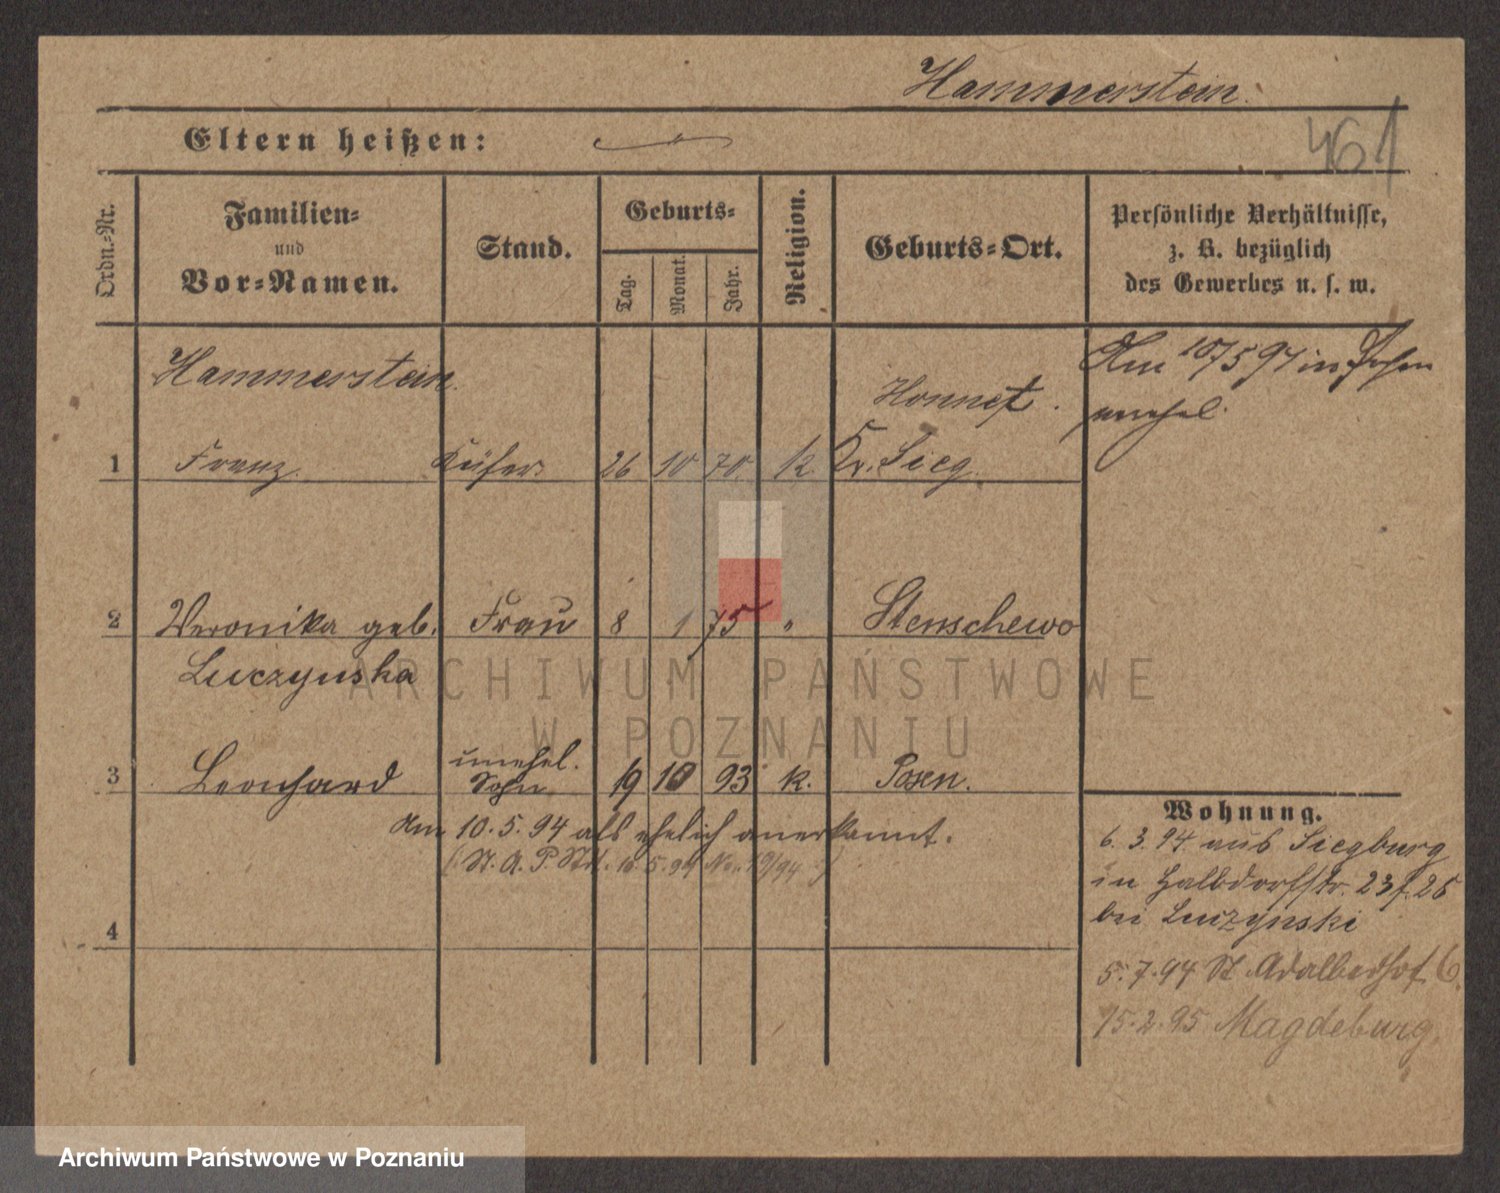 Hammerstein.
461
Eltern heißen:
Ordn.-Nr.
Familien-
und
Vor-Namen.
Stand.
Geburts-
Tag.
Monat.
Jahr.
Religion.
Geburts-Ort.
Persönliche Verhältnisse,
z. B. bezüglich
des Gewerbes u. s. w.
Hammerstein
Honnef.
Am 10/5 94 in Posen
verehel.
1 Franz. Küfer. 26 10 70. k. Kr. Sieg.
2 Veronika geb. Frau 8 1 75 " Stenschewo
Luczynska
3 Leonhard unehel. Sohn 19 10 93 k. Posen.
Am 10.5.94 als ehelich anerkannt.
(St. A. P. 5.94 No. 19/94)
4
Wohnung.
6. 3. 94 aus Siegburg
in Halbdorfstr. 23 f. 26
bei Luczynski
5. 7. 94 St Adalberthof 6.
15. 2. 95 Magdeburg.
ARCHIWUM PAŃSTWOWE
W POZNANIU
Archiwum Państwowe w Poznaniu